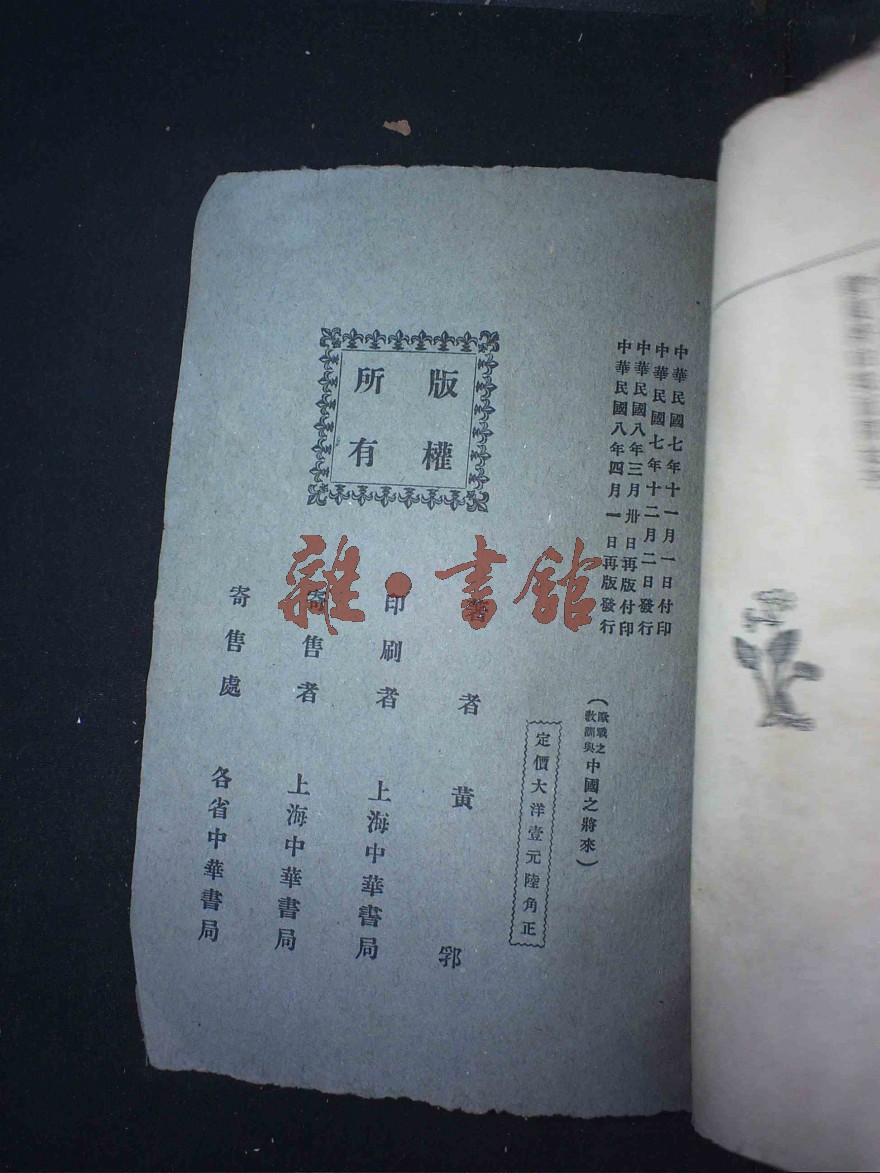 中華民國七年十一月一日付印
中華民國七年十二月二日發行
中華民國八年三月卅日再版付印
中華民國八年四月一日再版發行
（歐戰之教訓與中國之將來）
定價大洋壹元陸角正
版權所有
著者 黃郛
印刷者 上海中華書局
寄售者 上海中華書局
寄售處 各省中華書局
雜·書館